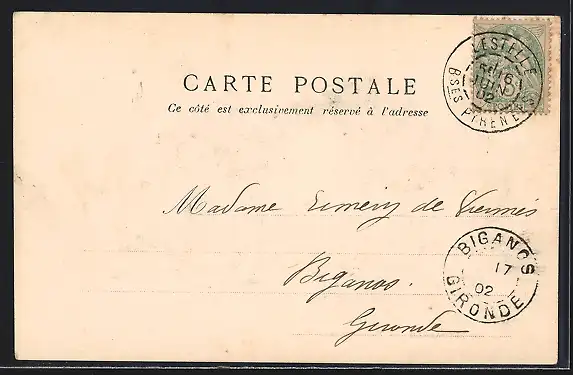 LESTELLE
16
JUIN
02
BSES PYRENEES
CARTE POSTALE
Ce côté est exclusivement réservé à l'adresse
Madame de
Biganos.
Gironde
BIGANOS
17
02
GIRONDE